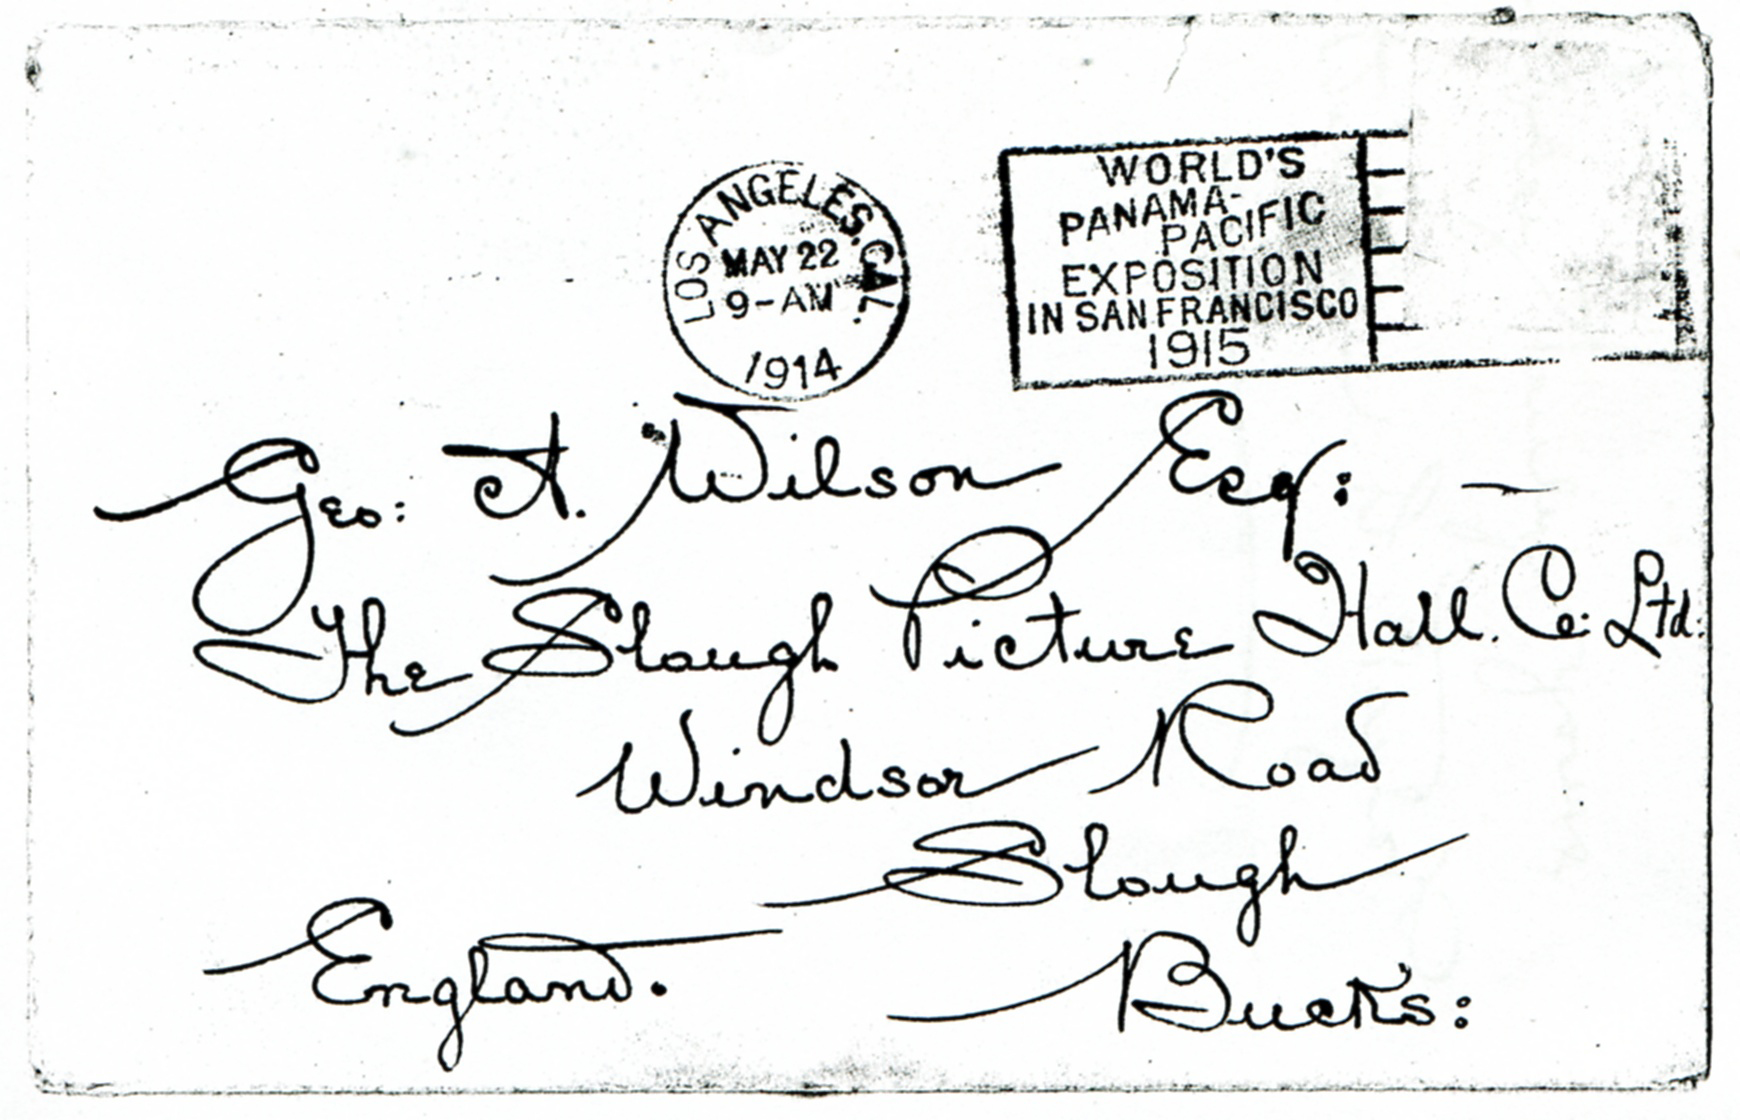 LOS ANGELES, CAL.
MAY 22
9-AM
1914
WORLD'S
PANAMA-
PACIFIC
EXPOSITION
IN SAN FRANCISCO
1915
Geo: A. Wilson Esq:
The Slough Picture Hall. Co: Ltd:
Windsor Road
Slough
England.
Bucks: